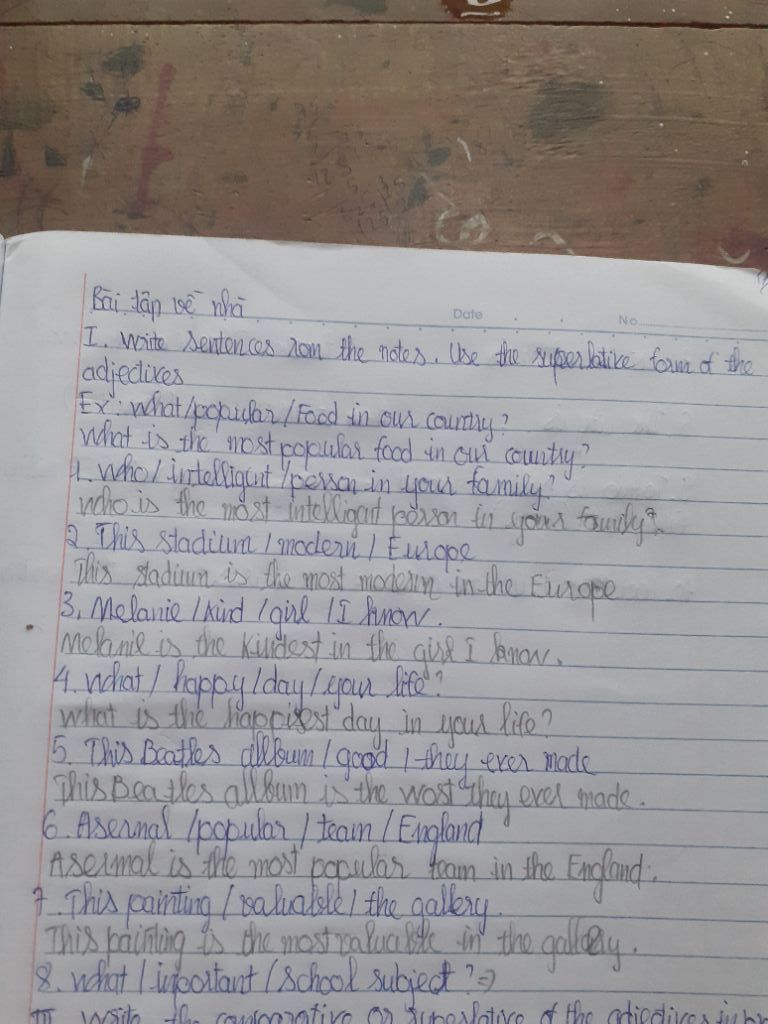 Bài tập về nhà
Date No
I. Write sentences rom the notes. Use the superlative form of the
adjectives
Ex: What/popular/Food in our country?
What is the most popular food in our country?
1. Who/intelligent/person in your family?
Who is the most intelligent person in your family?
2. This stadium / modern / Europe
This stadium is the most modern in the Europe
3. Melanie / kind / girl / I know.
Melanie is the kindest in the girl I know.
4. What / happy / day / your life?
What is the happiest day in your life?
5. This Beatles allbum / good / they ever made
This Beatles allbum is the they ever made.
6. Asernal / popular / team / England
Asermal is the most popular team in the England.
7. This painting / valuable / the gallery.
This painting is the most valuable in the gallery.
8. What / important / school subject? =>
II. Write the comparative or superlative of the adjectives in